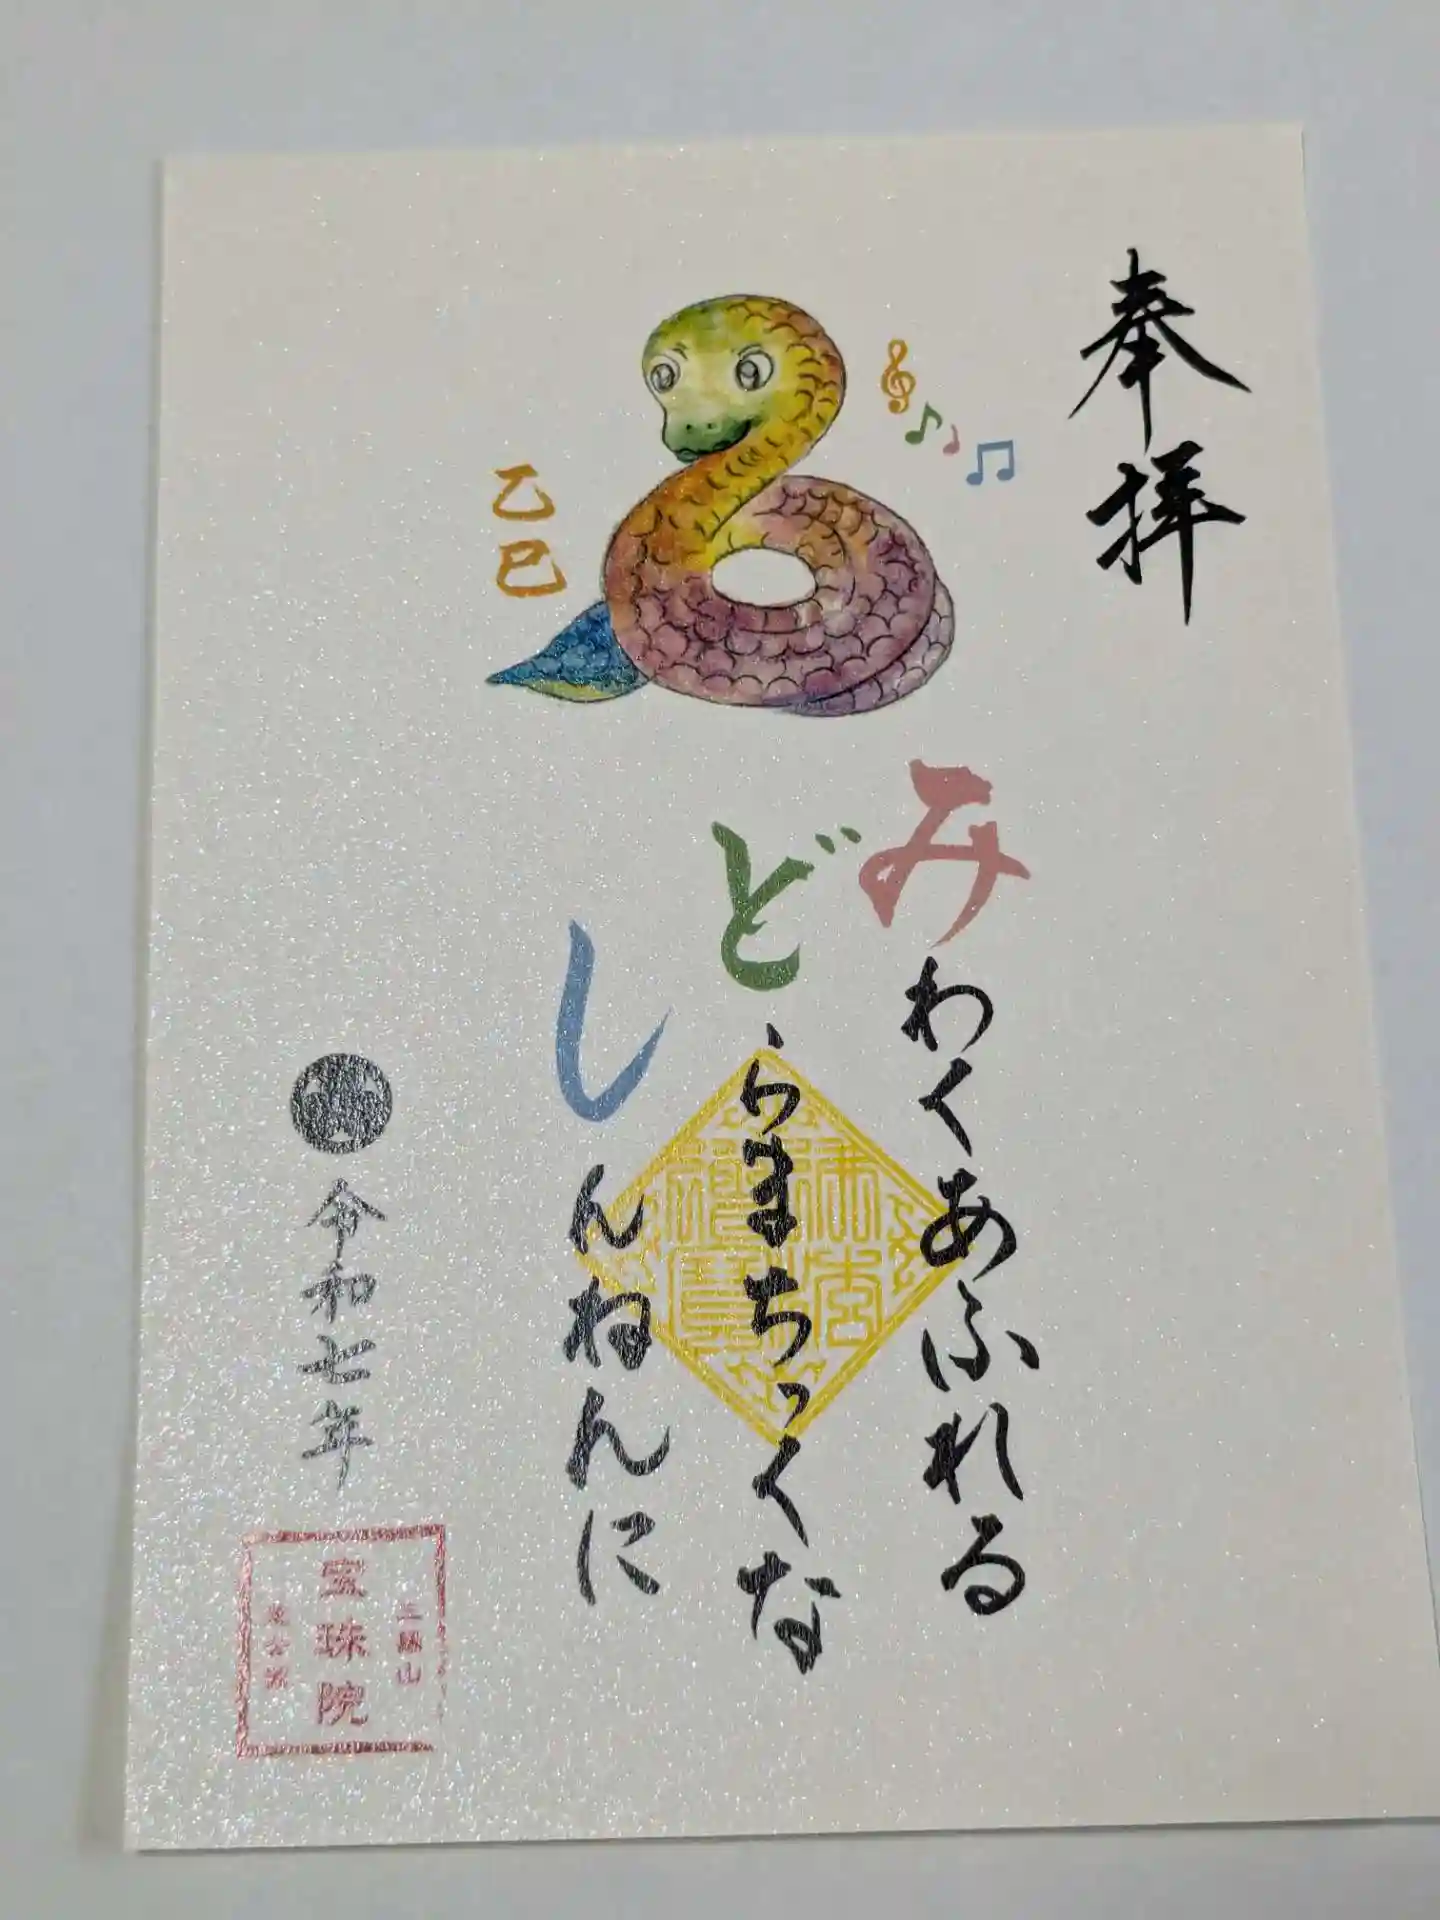 奉拝
乙巳
みわくあふれる
どらまちっくな
しんねんに
令和七年
宝珠院